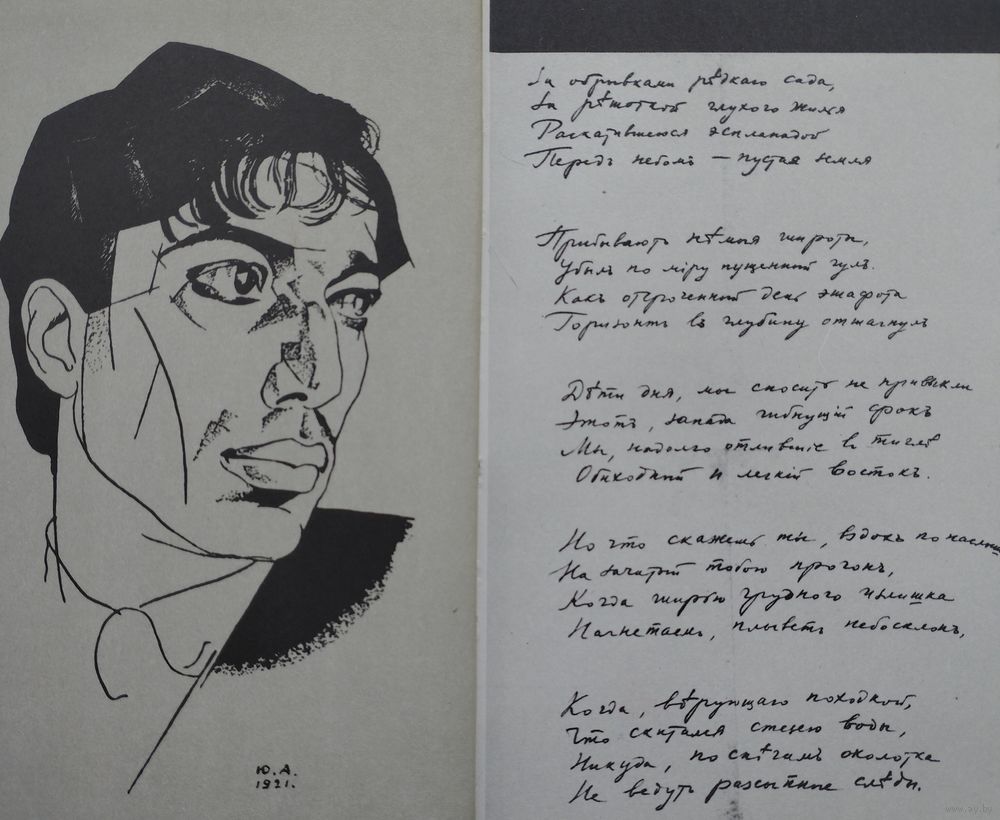 Ю.А.
1921.
За обрывками рѣдкаго сада,
За рѣшоткой глухого жилья
Раскатившеюся эспланадой
Передъ небомъ — пустая земля
Прибываютъ нѣмыя широты,
Убылъ по міру пущенный гулъ.
Какъ отсроченный день эшафота
Горизонтъ въ глубину отшагнулъ
Дѣти дня, мы сносить не привыкли
Этотъ запада гибнущій срокъ
Мы, надолго отлившіе въ тиглѣ
Обиходный и легкій Востокъ.
Но что скажешь ты, вздохъ по
На зачатый тобою прогонъ,
Когда ширью грудного
Нагнетаемъ, плыветъ небосклонъ,
Когда, вѣрующаго походкой,
Что скитался стезею воды,
Никуда, по околотка
Не ведутъ слѣды.
www.ay.by